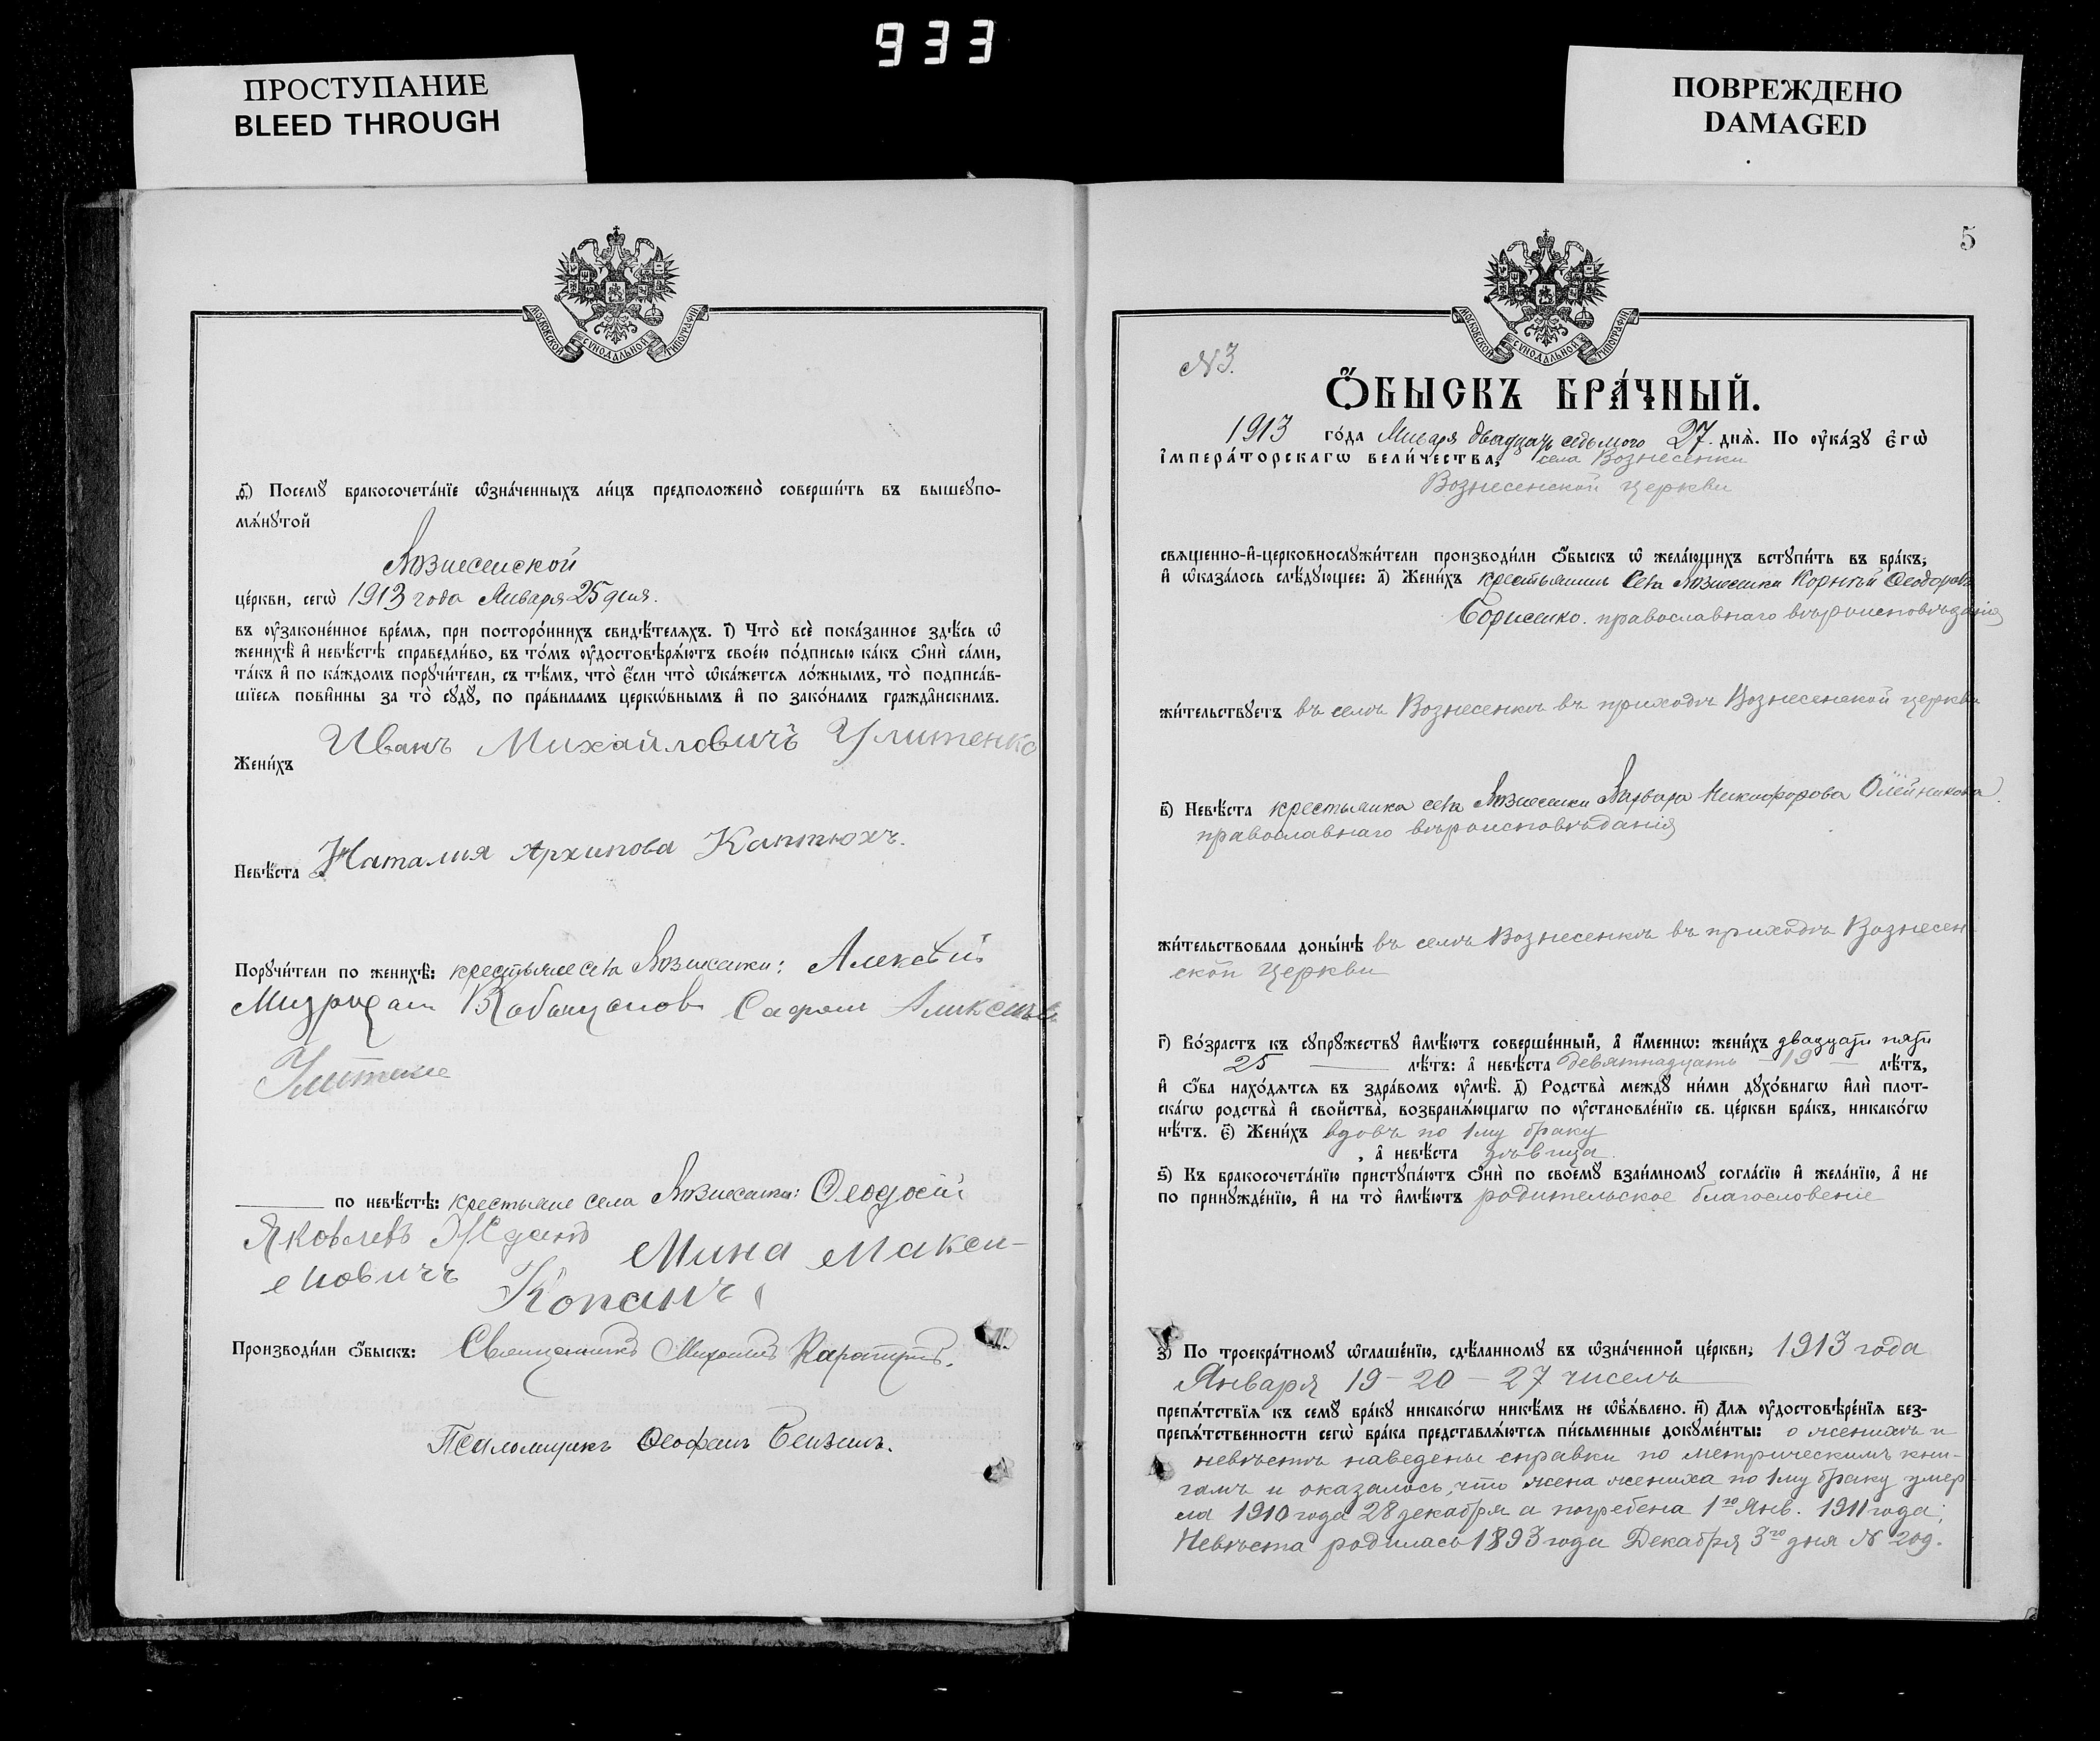 933
ПРОСТУПАНИЕ
BLEED THROUGH
ПОВРЕЖДЕНО
DAMAGED
МОСКОВСКОЙ СѴНОДАЛЬНОЙ ТИПОГРАФІИ
ѳ҃) Посемꙋ бракосочета́нїе ѡ҆зна́ченныхъ ли́цъ предположено̀ соверши́ть въ вышеꙋпо-
мѧ́нꙋтой
Вознесенской
це́ркви, сегѡ̀ 1913 года Января 25 дня.
въ ᲂу҆законе́нное вре́мѧ, при посторо́ннихъ свидѣ́телѧхъ. і҃) Что̀ всѐ пока́занное здѣ́сь ѡ҆
женихѣ̀ и҆ невѣ́стѣ справедли́во, въ то́мъ ᲂу҆достовѣрѧ́ютъ свое́ю по́дписью ка́къ ѻ҆нѝ са́ми,
та́къ и҆ по ка́ждомъ порꙋчи́тели, съ тѣ́мъ, что̀ є҆́сли что̀ ѡ҆ка́жетсѧ ло́жнымъ, то̀ подписа́в-
шїесѧ пови́нны за то̀ сꙋдꙋ̀, по пра́виламъ церкѡ́внымъ и҆ по зако́намъ гражда́нскимъ.
Жени́хъ Иванъ Михайловичъ Улитенко
Невѣ́ста Наталия Архипова Каптюхъ.
Порꙋчи́тели по женихѣ̀: крестьяне села Вознесенки: Алексѣй
Улитенко
по невѣ́стѣ: крестьяне села Вознесенки: Ѳеодосій
Яковлевъ Жданъ Мина Макси-
мовичъ Копанъ
Производи́ли ѻ҆́быскъ: Священникъ Михаилъ
Псаломщикъ Ѳеофанъ
5
МОСКОВСКОЙ СѴНОДАЛЬНОЙ ТИПОГРАФІИ
N 3.
Ѻ҆́БЫСКЪ БРА́ЧНЫЙ.
1913 го́да Января двадцать седьмого 27 днѧ̀. По ᲂу҆ка́зꙋ є҆гѡ̀
і҆мпера́торскагѡ вели́чества, села Вознесенки
Вознесенской церкви
свѧщенно-и҆-церковнослꙋжи́тели производи́ли ѻ҆́быскъ ѡ҆ жела́ющихъ встꙋпи́ть въ бра́къ;
и҆ ѡ҆каза́лось слѣ́дꙋющее: а҃) Жени́хъ крестьянинъ села Вознесенки Корнѣй Ѳеодоровъ
Борисенко. православнаго вѣроисповѣданія
жи́тельствꙋетъ въ селѣ Вознесенкѣ въ приходѣ Вознесенской церкви
в҃) Невѣ́ста крестьянка села Вознесенки Варвара Никифорова Олейникова
православнаго вѣроисповѣданія
жи́тельствовала доны́нѣ въ селѣ Вознесенкѣ въ приходѣ Вознесен-
ской церкви
г҃) Во́зрастъ къ сꙋпрꙋжествꙋ и҆мѣ́ютъ соверше́нный, а҆ и҆́меннѡ: жени́хъ двадцати пяти
25 лѣ́тъ: а҆ невѣ́ста девятнадцать – 19 – лѣ́тъ,
и҆ ѻ҆́ба нахо́дѧтсѧ въ здра́вомъ ᲂу҆мѣ̀. д҃) Родства̀ междꙋ̀ ни́ми дꙋхо́внагѡ и҆лѝ плот-
ска́гѡ родства̀ и҆ свойства̀, возбранѧ́ющагѡ по ᲂу҆становле́нїю св. це́ркви бра́къ, никако́гѡ
нѣ́тъ. є҃) Жени́хъ вдовъ по 1му браку
, а҆ невѣ́ста дѣвица.
ѕ҃) Къ бракосочета́нїю пристꙋпа́ютъ ѻ҆нѝ по своемꙋ̀ взаи́мномꙋ согла́сїю и҆ жела́нїю, а҆ не
по принꙋжде́нїю, и҆ на то̀ и҆мѣ́ютъ родительское благословеніе
з҃) По троекра́тномꙋ ѡ҆глаше́нїю, сдѣ́ланномꙋ въ ѡ҆зна́ченной це́ркви; 1913 года
Января 19 – 20 – 27 чиселъ
препѧ́тствїѧ къ семꙋ̀ бра́кꙋ никако́гѡ никѣ́мъ не ѡ҆б̾ѧ́влено. и҃) Для ᲂу҆достовѣре́нїѧ без-
препѧ́тственности сегѡ̀ бра́ка представлѧ́ютсѧ пи́сьменные докꙋме́нты: о женихѣ и
невѣстѣ наведены справки по метрическимъ кни-
гамъ и оказалось, что жена жениха по 1му браку умер-
ла 1910 года 28 декабря а погребена 1го Янв. 1911 года;
Невѣста родилась 1893 года Декабря 3го дня N 209.